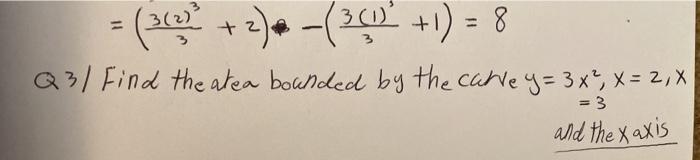 = (3(2)³/3 + 2) - (3(1)³/3 + 1) = 8
Q3/ Find the area bounded by the curve y = 3x², x = 2, x
= 3
and the x axis